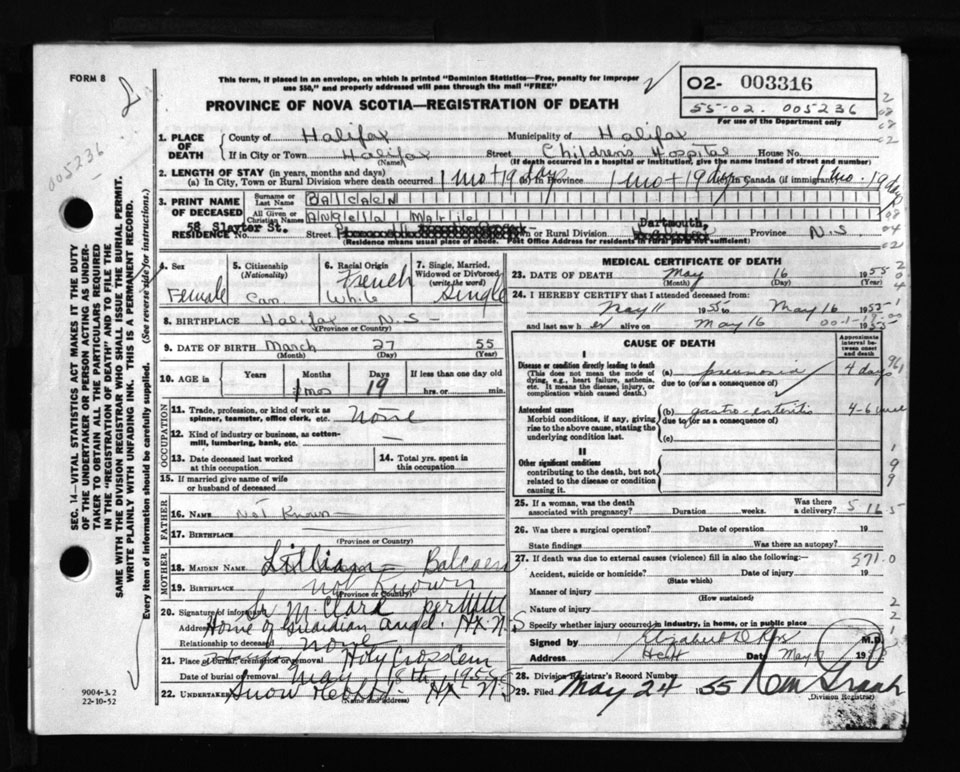 FORM 8
This form, if placed in an envelope, on which is printed "Dominion Statistics—Free, penalty for improper
use $50," and properly addressed will pass through the mail "FREE"
PROVINCE OF NOVA SCOTIA—REGISTRATION OF DEATH
O2- 003316
55-02. 005236
For use of the Department only
005236
SEC. 14—VITAL STATISTICS ACT MAKES IT THE DUTY
OF THE UNDERTAKER OR PERSON ACTING AS UNDER-
TAKER TO OBTAIN ALL THE PARTICULARS REQUIRED
IN THE "REGISTRATION OF DEATH" AND TO FILE THE
SAME WITH THE DIVISION REGISTRAR WHO SHALL ISSUE THE BURIAL PERMIT.
WRITE PLAINLY WITH UNFADING INK. THIS IS A PERMANENT RECORD.
Every item of information should be carefully supplied. (See reverse side for instructions.)
1. PLACE OF DEATH County of Halifax Municipality of Halifax
If in City or Town Halifax (Name) Street Children's Hospital House No.
(If death occurred in a hospital or institution, give the name instead of street and number)
2. LENGTH OF STAY (in years, months and days)
(a) In City, Town or Rural Division where death occurred 1 mo + 19 days (b) In Province 1 mo + 19 days In Canada (if immigrant) mo. 19 days
3. PRINT NAME OF DECEASED Surname or Last Name BALCAEN
All Given or Christian Names ANGELA MARIE
RESIDENCE No. 58 Slayter St. Street Town or Rural Division Dartmouth, Province N.S
(Residence means usual place of abode. Post Office Address for residents in rural parts not sufficient)
4. Sex Female
5. Citizenship (Nationality) Can.
6. Racial Origin French White
7. Single, Married, Widowed or Divorced (write the word) Single
8. BIRTHPLACE Halifax N.S-
(Province or Country)
9. DATE OF BIRTH March 27 55
(Month) (Day) (Year)
10. AGE in Years Months Days If less than one day old
1 mos 19 hrs. or min.
OCCUPATION
11. Trade, profession, or kind of work as spinner, teamster, office clerk, etc. none
12. Kind of industry or business, as cotton-mill, lumbering, bank, etc. —
13. Date deceased last worked at this occupation
14. Total yrs. spent in this occupation
15. If married give name of wife or husband of deceased
FATHER
16. NAME Not Known
17. BIRTHPLACE
(Province or Country)
MOTHER
18. MAIDEN NAME Lillian- Balcaen
19. BIRTHPLACE not Known
(Province or Country)
20. Signature of informant Sr M. Clark per
Address Home of Guardian Angel. Hx. N.S
Relationship to deceased none
21. Place of burial, cremation or removal Holy Cross Cem
Date of burial or removal May 18th, 1955
22. UNDERTAKER Snow Hx N.S.
(Name and address)
9004-3.2
22-10-52
MEDICAL CERTIFICATE OF DEATH
23. DATE OF DEATH May 16 1955
(Month) (Day) (Year)
24. I HEREBY CERTIFY that I attended deceased from:
May 11 1955 to May 16 1955
and last saw her alive on May 16 1955
CAUSE OF DEATH
Approximate interval between onset and death
I
Disease or condition directly leading to death
(This does not mean the mode of dying, e.g., heart failure, asthenia, etc. It means the disease, injury, or complication which caused death.)
(a) pneumonia 4 days
due to (or as a consequence of)
Antecedent causes
Morbid conditions, if any, giving rise to the above cause, stating the underlying condition last.
(b) gastro-enteritis 4-6
due to (or as a consequence of)
(c)
II
Other significant conditions
contributing to the death, but not related to the disease or condition causing it.
25. If a woman, was the death associated with pregnancy? Duration weeks. Was there a delivery? 516.5
26. Was there a surgical operation? Date of operation 19
State findings Was there an autopsy?
27. If death was due to external causes (violence) fill in also the following:— 571.0
Accident, suicide or homicide? (State which) Date of injury 19
Manner of injury
(How sustained)
Nature of injury
Specify whether injury occurred in industry, in home, or in public place
Signed by Elizabeth D Ross M.D.
Address Date May 19
28. Division Registrar's Record Number
29. Filed May 24 1955
Division Registrar